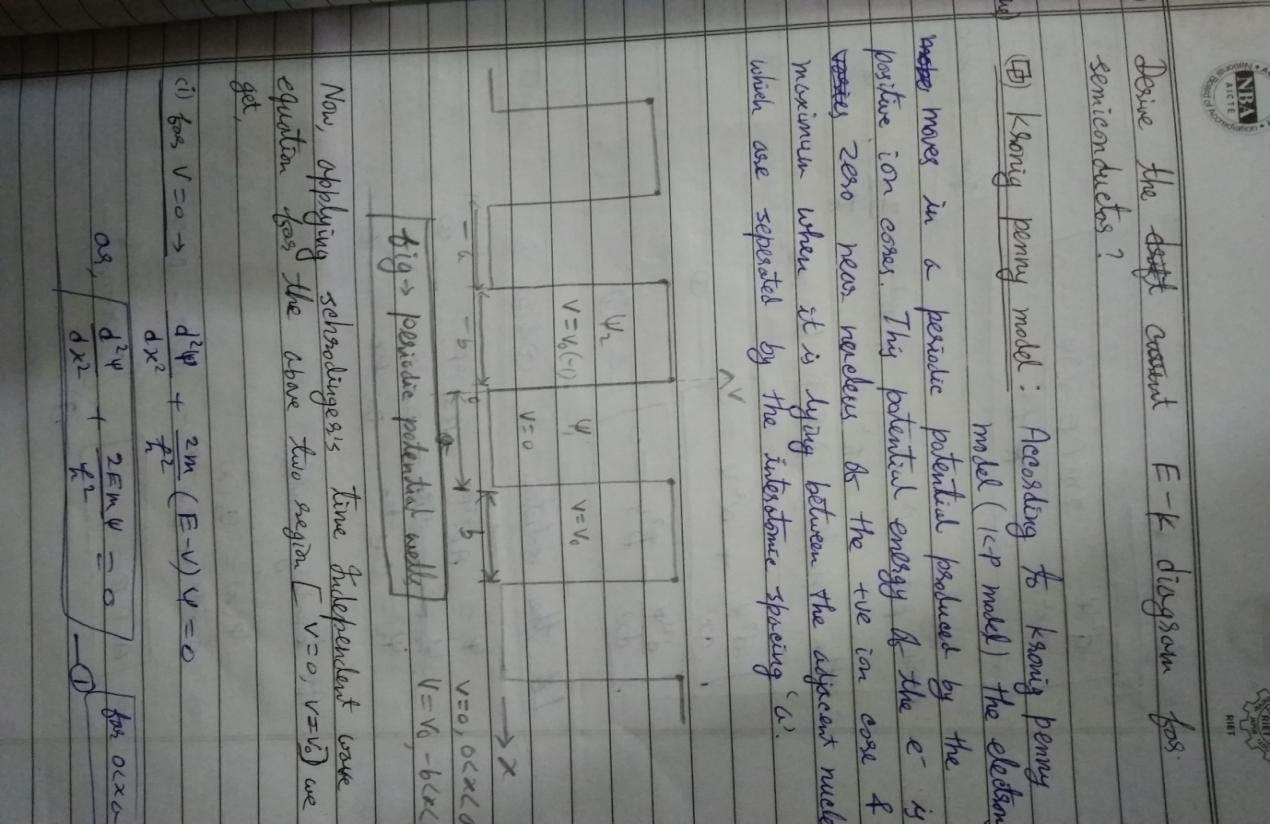 NBA
AICTE
RIET
Derive the current E-k diagram for
semiconductor?
Kronig penny model: According to kronig penny
model (K-P model) the electron
moves in a periodic potential produced by the
positive ion cores. This potential energy of the e⁻ is
zero near neucleus of the +ve ion core &
maximum when it is lying between the adjacent nucle
which are seperated by the interatomic spacing 'a'.
V
ψ₂
ψ₁
V=V₀(-1)
V=0
V=V₀
x
-a
-b
0
a
b
V=0, 0<x<a
V=V₀, -b<x<
fig→ periodic potential wells
Now, applying schrodinger's time Independent wave
equation for the above two region [V=0, V=V₀] we
get,
(i) for V=0 → d²ψ/dx² + 2m/ħ² (E-V)ψ=0
or, d²ψ/dx² + 2Emψ/ħ² = 0 for 0<x<a
①